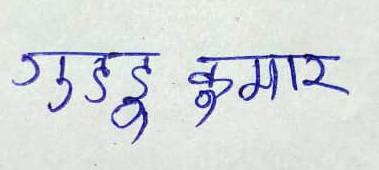 गुडडू कुमार